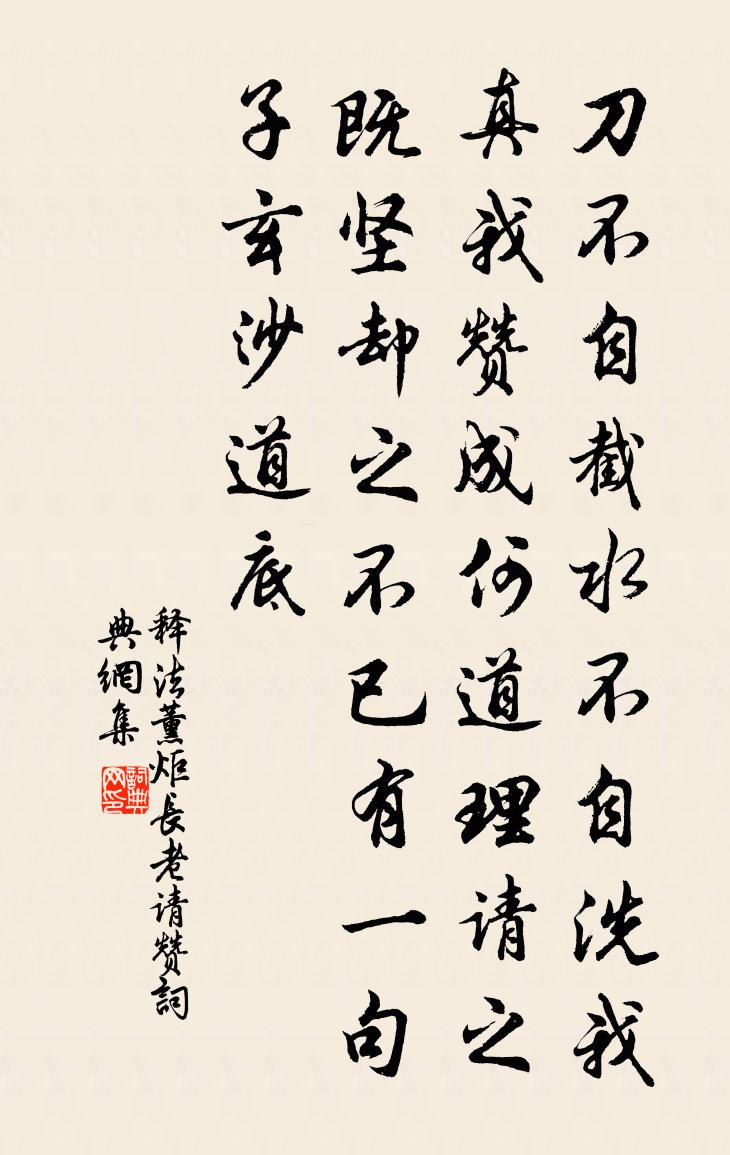 刀不自截水不自洗我
真我赞成何道理请之
既坚却之不已有一句
子玄沙道底
释法薰炬長老请赞詞
典網集
詞典网印